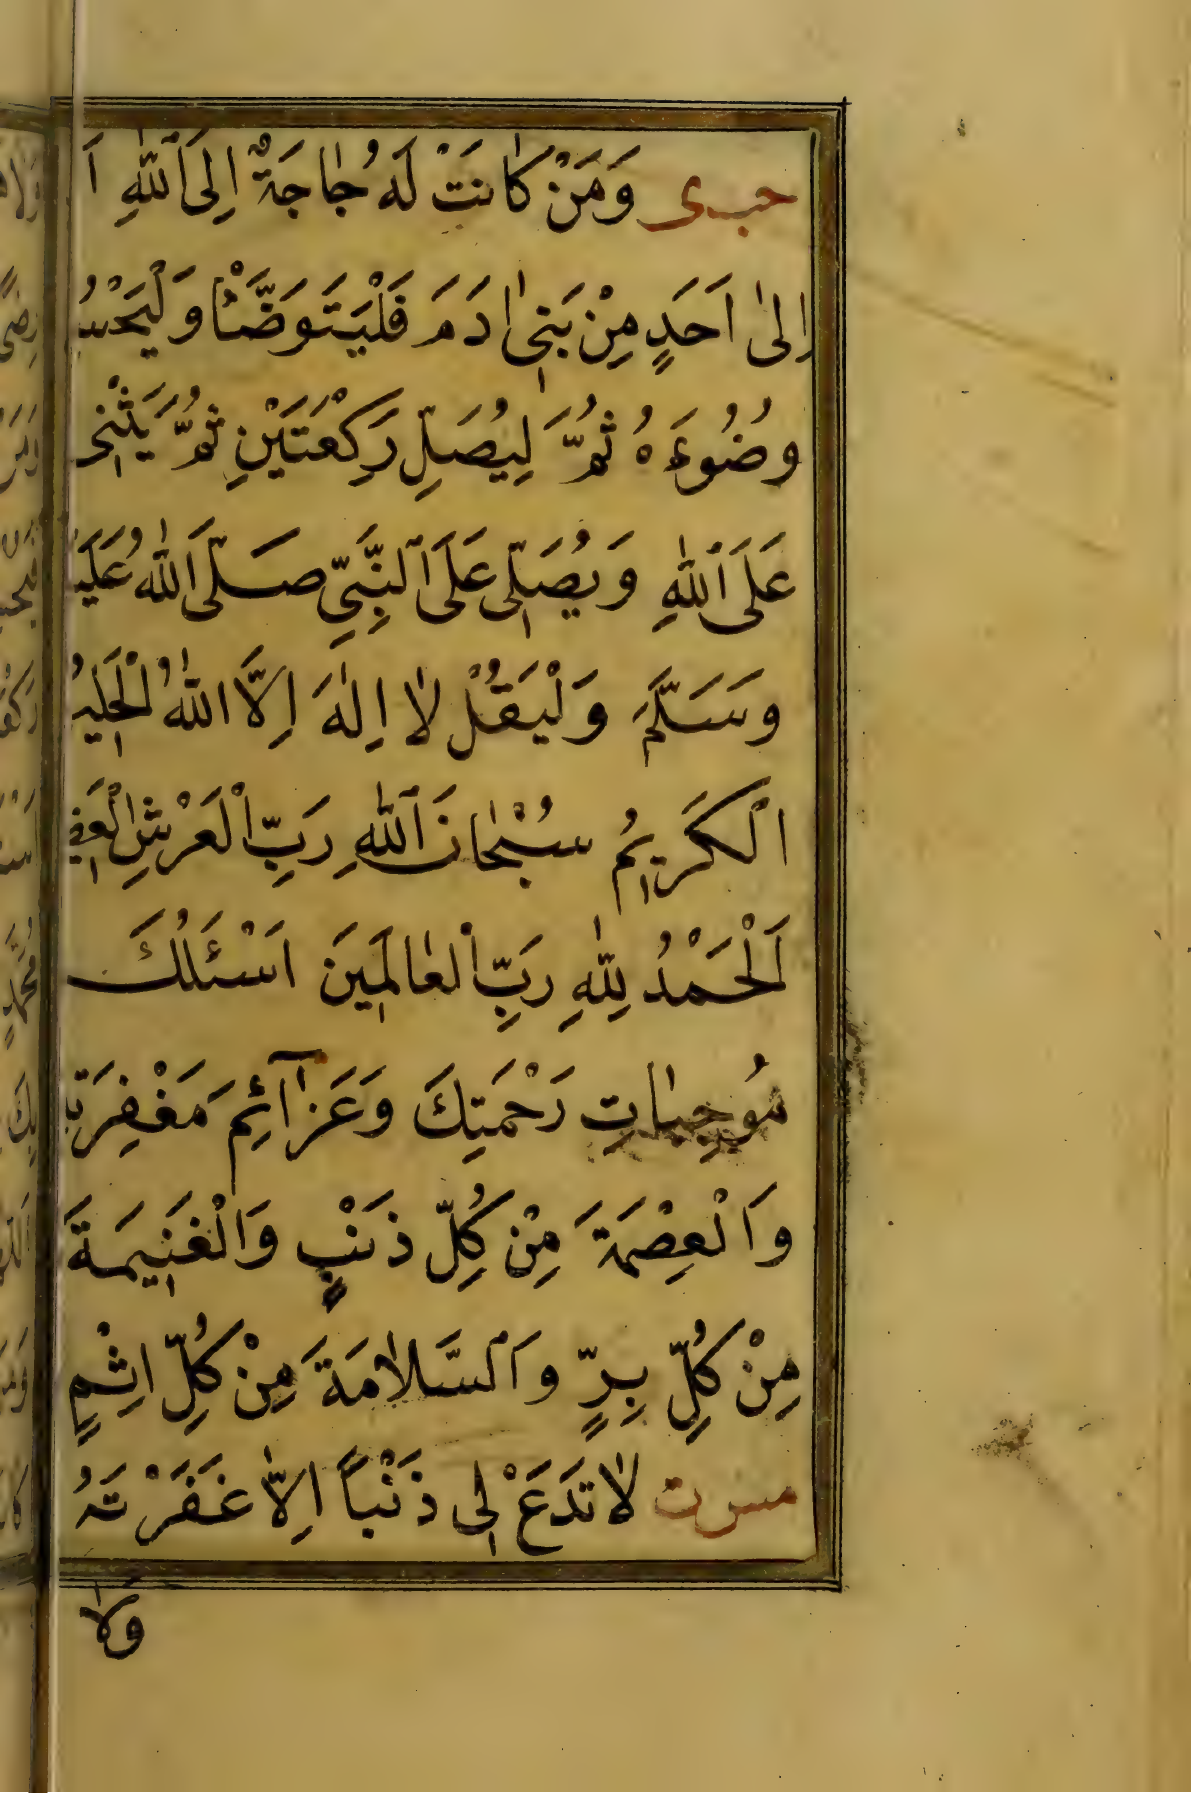 حب ى وَمَنْ كَانَتْ لَهُ حَاجَةٌ اِلَى اللّٰهِ اَ
اِلىٰ اَحَدٍ مِنْ بَنِى اٰدَمَ فَلْيَتَوَضَّأْ وَلْيُحْسِ
وُضُوءَهُ ثُمَّ لِيُصَلِّ رَكْعَتَيْنِ ثُمَّ يَثْنِى
عَلَى اللّٰهِ وَيُصَلِّى عَلَى النَّبِيِّ صَلَّى اللّٰهُ عَلَيْ
وَسَلَّمَ وَلْيَقُلْ لَا اِلٰهَ اِلَّا اللّٰهُ الْحَلِيمُ
الْكَرِيمُ سُبْحَانَ اللّٰهِ رَبِّ الْعَرْشِ الْعَظِ
اَلْحَمْدُ لِلّٰهِ رَبِّ الْعَالَمِينَ اَسْئَلُكَ
مُوجِبَاتِ رَحْمَتِكَ وَعَزَآئِمَ مَغْفِرَتِ
وَالْعِصْمَةَ مِنْ كُلِّ ذَنْبٍ وَالْغَنِيمَةَ
مِنْ كُلِّ بِرٍّ وَالسَّلَامَةَ مِنْ كُلِّ اِثْمٍ
مس ت لَا تَدَعْ لِى ذَنْبًا اِلَّا غَفَرْتَهُ
وَلَا